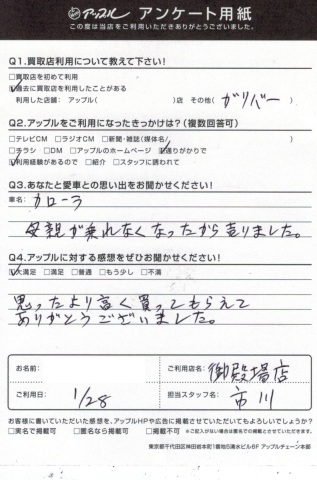 アップル アンケート用紙
この度は当店をご利用いただきありがとうございました。
Q1.買取店利用について教えて下さい!
□買取店を初めて利用
☑過去に買取店を利用したことがある
利用した店舗: アップル( )店 その他( ガリバー )
Q2.アップルをご利用になったきっかけは?(複数回答可)
□テレビCM □ラジオCM □新聞・雑誌(媒体名/ )
□チラシ □DM □アップルのホームページ ☑通りがかりで
☑利用経験があるので □紹介 □スタッフに誘われて
Q3.あなたと愛車との思い出をお聞かせください!
車名: カローラ
母親が乗れなくなったから売りました。
Q4.アップルに対する感想をぜひお聞かせください!
☑大満足 □満足 □普通 □もう少し □不満
思ったより高く買ってもらえて
ありがとうございました。
お名前:
ご利用店名: 御殿場店
ご利用日: 1/28
担当スタッフ名: 市川
お客様に書いていただいた感想を、アップルHPや広告に掲載させていただいてもよろしいでしょうか?
□実名で掲載可 □匿名なら掲載可 □掲載不可 ※ご記入がない場合は匿名での掲載とさせていただきます。
東京都千代田区神田岩本町1番地5清水ビル6F アップルチェーン本部